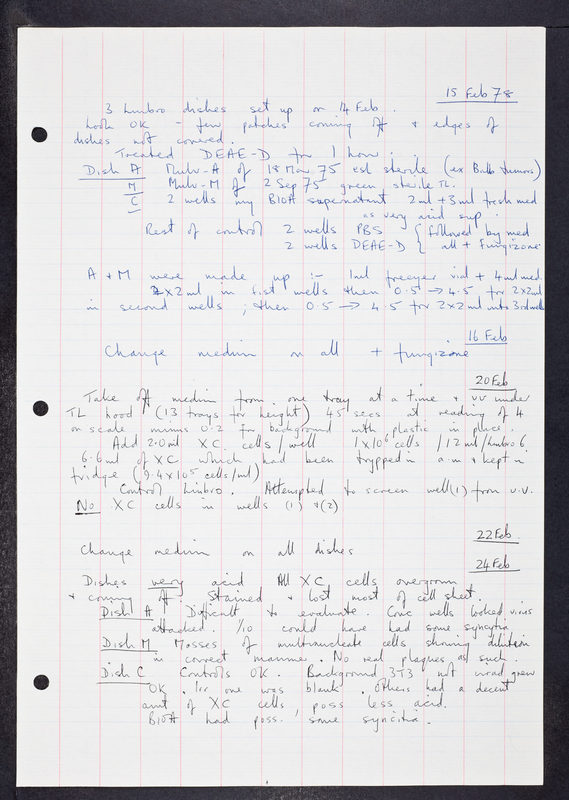 15 Feb 78
3 Limbro dishes set up on 14 Feb.
Look OK - few patches coming off & edges of
dishes not covered.
Treated DEAE-D for 1 hour.
Dish A Mulv-A of 18 Nov 75 sterile (ex Balb tumors)
M Mulv-M of 2 Sep 75 green sterile TL.
C 2 wells my B10A supernatant 2ml + 3ml fresh med
as very acid sup.
Rest of control 2 wells PBS { followed by med
2 wells DEAE-D { all + Fungizone
A + M were made up :- 1ml freezer vial + 4ml med.
2x2ml in first wells then 0.5 → 4.5 for 2x2ml
in second wells ; then 0.5 → 4.5 for 2x2ml into 3rd wells
16 Feb
Change medium on all + fungizone
20 Feb
Take off medium from one tray at a time & UV under
TL hood (13 trays for height) 45 secs at reading of 4
on scale minus 0.2 for background with plastic in place.
Add 2.0ml XC cells/well 1x10⁶ cells /12ml/Limbro 6
6.6ml of XC which had been trypped in a.m & kept in
fridge (9.4x10⁵ cells/ml)
Control Limbro. Attempted to screen well (1) from U.V.
No XC cells in wells (1) & (2)
22 Feb.
Change medium on all dishes
24 Feb
Dishes very acid All XC cells overgrown
& coming off. Stained & lost most of cell sheet.
Dish A Difficult to evaluate. Conc wells looked virus
attacked. 1/10 could have had some syncytia
Dish M Masses of multinucleate cells showing dilution
in correct manner. No real plaques as such.
Dish C Controls OK. Background 3T3 not irrad, grew
OK. one was blank. Others had a decent
amt of XC cells, poss less acid.
B10A had poss. some syncitia.